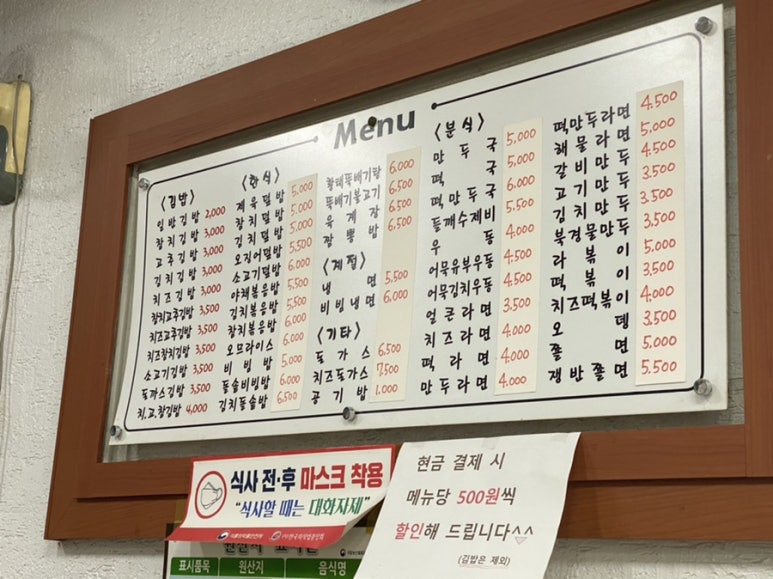 Menu
<김밥>
일반김밥 2,000
참치김밥 3,000
고추김밥 3,000
김치김밥 3,000
치즈김밥 3,000
참치고추김밥 3,500
치즈고추김밥 3,500
치즈참치김밥 3,500
소고기김밥 3,500
돈까스김밥 3,500
치.고.참김밥 4,000
<한식>
제육덮밥 5,000
참치덮밥 5,000
김치덮밥 5,000
오징어덮밥 5,500
소고기덮밥 6,000
야채볶음밥 5,500
김치볶음밥 5,500
참치볶음밥 6,000
오므라이스 6,000
비빔밥 5,000
돌솥비빔밥 6,000
김치돌솥밥 6,500
황태뚝배기탕 6,000
뚝배기불고기 6,500
육계장 6,500
짬뽕밥 6,500
<계절>
냉면 5,500
비빔냉면 6,000
<기타>
돈까스 6,500
치즈돈까스 7,500
공기밥 1,000
<분식>
만두국 5,000
떡국 5,000
떡만두국 6,000
들깨수제비 5,500
우동 4,000
어묵유부우동 4,500
어묵김치우동 4,500
얼큰라면 3,500
치즈라면 4,000
떡라면 4,000
만두라면 4,000
떡만두라면 4,500
해물라면 5,000
갈비만두 4,500
고기만두 3,500
김치만두 3,500
북경물만두 3,500
라볶이 5,000
떡볶이 3,500
치즈떡볶이 4,000
오뎅 3,500
쫄면 5,000
쟁반쫄면 5,500
식사 전·후 마스크 착용
"식사할 때는 대화자제"
식품의약품안전처
표시품목 원산지 음식명
현금 결제 시
메뉴당 500원씩
할인해 드립니다^^
(김밥은 제외)